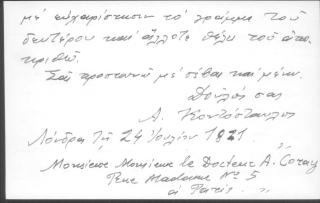 μέ εὐχαρίστησιν τό γράμμα τοῦ
δευτέρου καί ἄλλοτε θέλω τοῦ ἀπο-
κριθῶ.
Σᾶς προσκυνῶ μέ σέβας καί μένω.
Δοῦλός σας
Α. Κοντόσταυλος
Λόνδρα τῇ 24 Ἰουλίου 1821
Monsieur Monsieur le Docteur A. Coray
Rue Madame No 5
à Paris